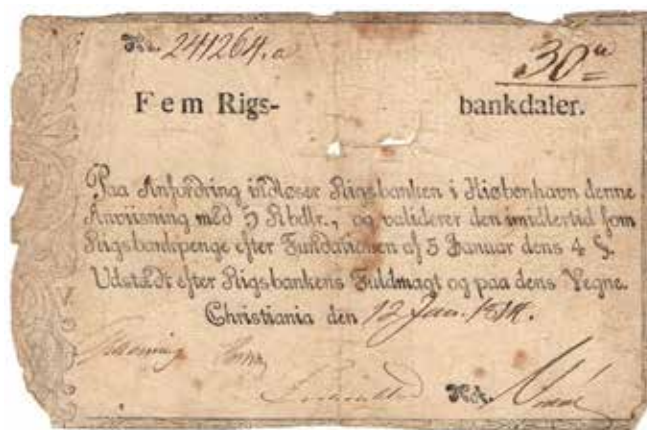 No. 241264.a
30
Fem Rigs- bankdaler.
Paa Anfordring indløser Rigsbanken i Kiøbenhavn denne
Anviisning med 5 Rbdlr., og validerer den imidlertid som
Rigsbankpenge efter Fundationen af 5 Januar dens 4 §.
Udstædt efter Rigsbankens Fuldmagt og paa dens Vegne.
Christiania den 12 Jan. 1814.
Not.